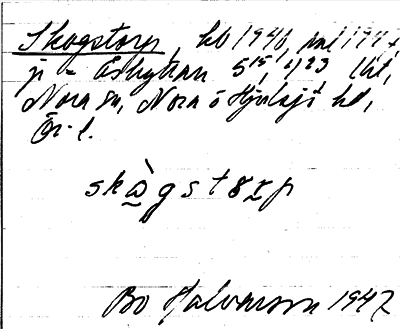 Skogstorp, kb 1940, msl 1947,
jr - Eskyttan 5 15, 423 lht,
Nora sn, Nora o Hjulsjö hd,
Ör. l.
skògstorp
Bo Halvarsson 1947